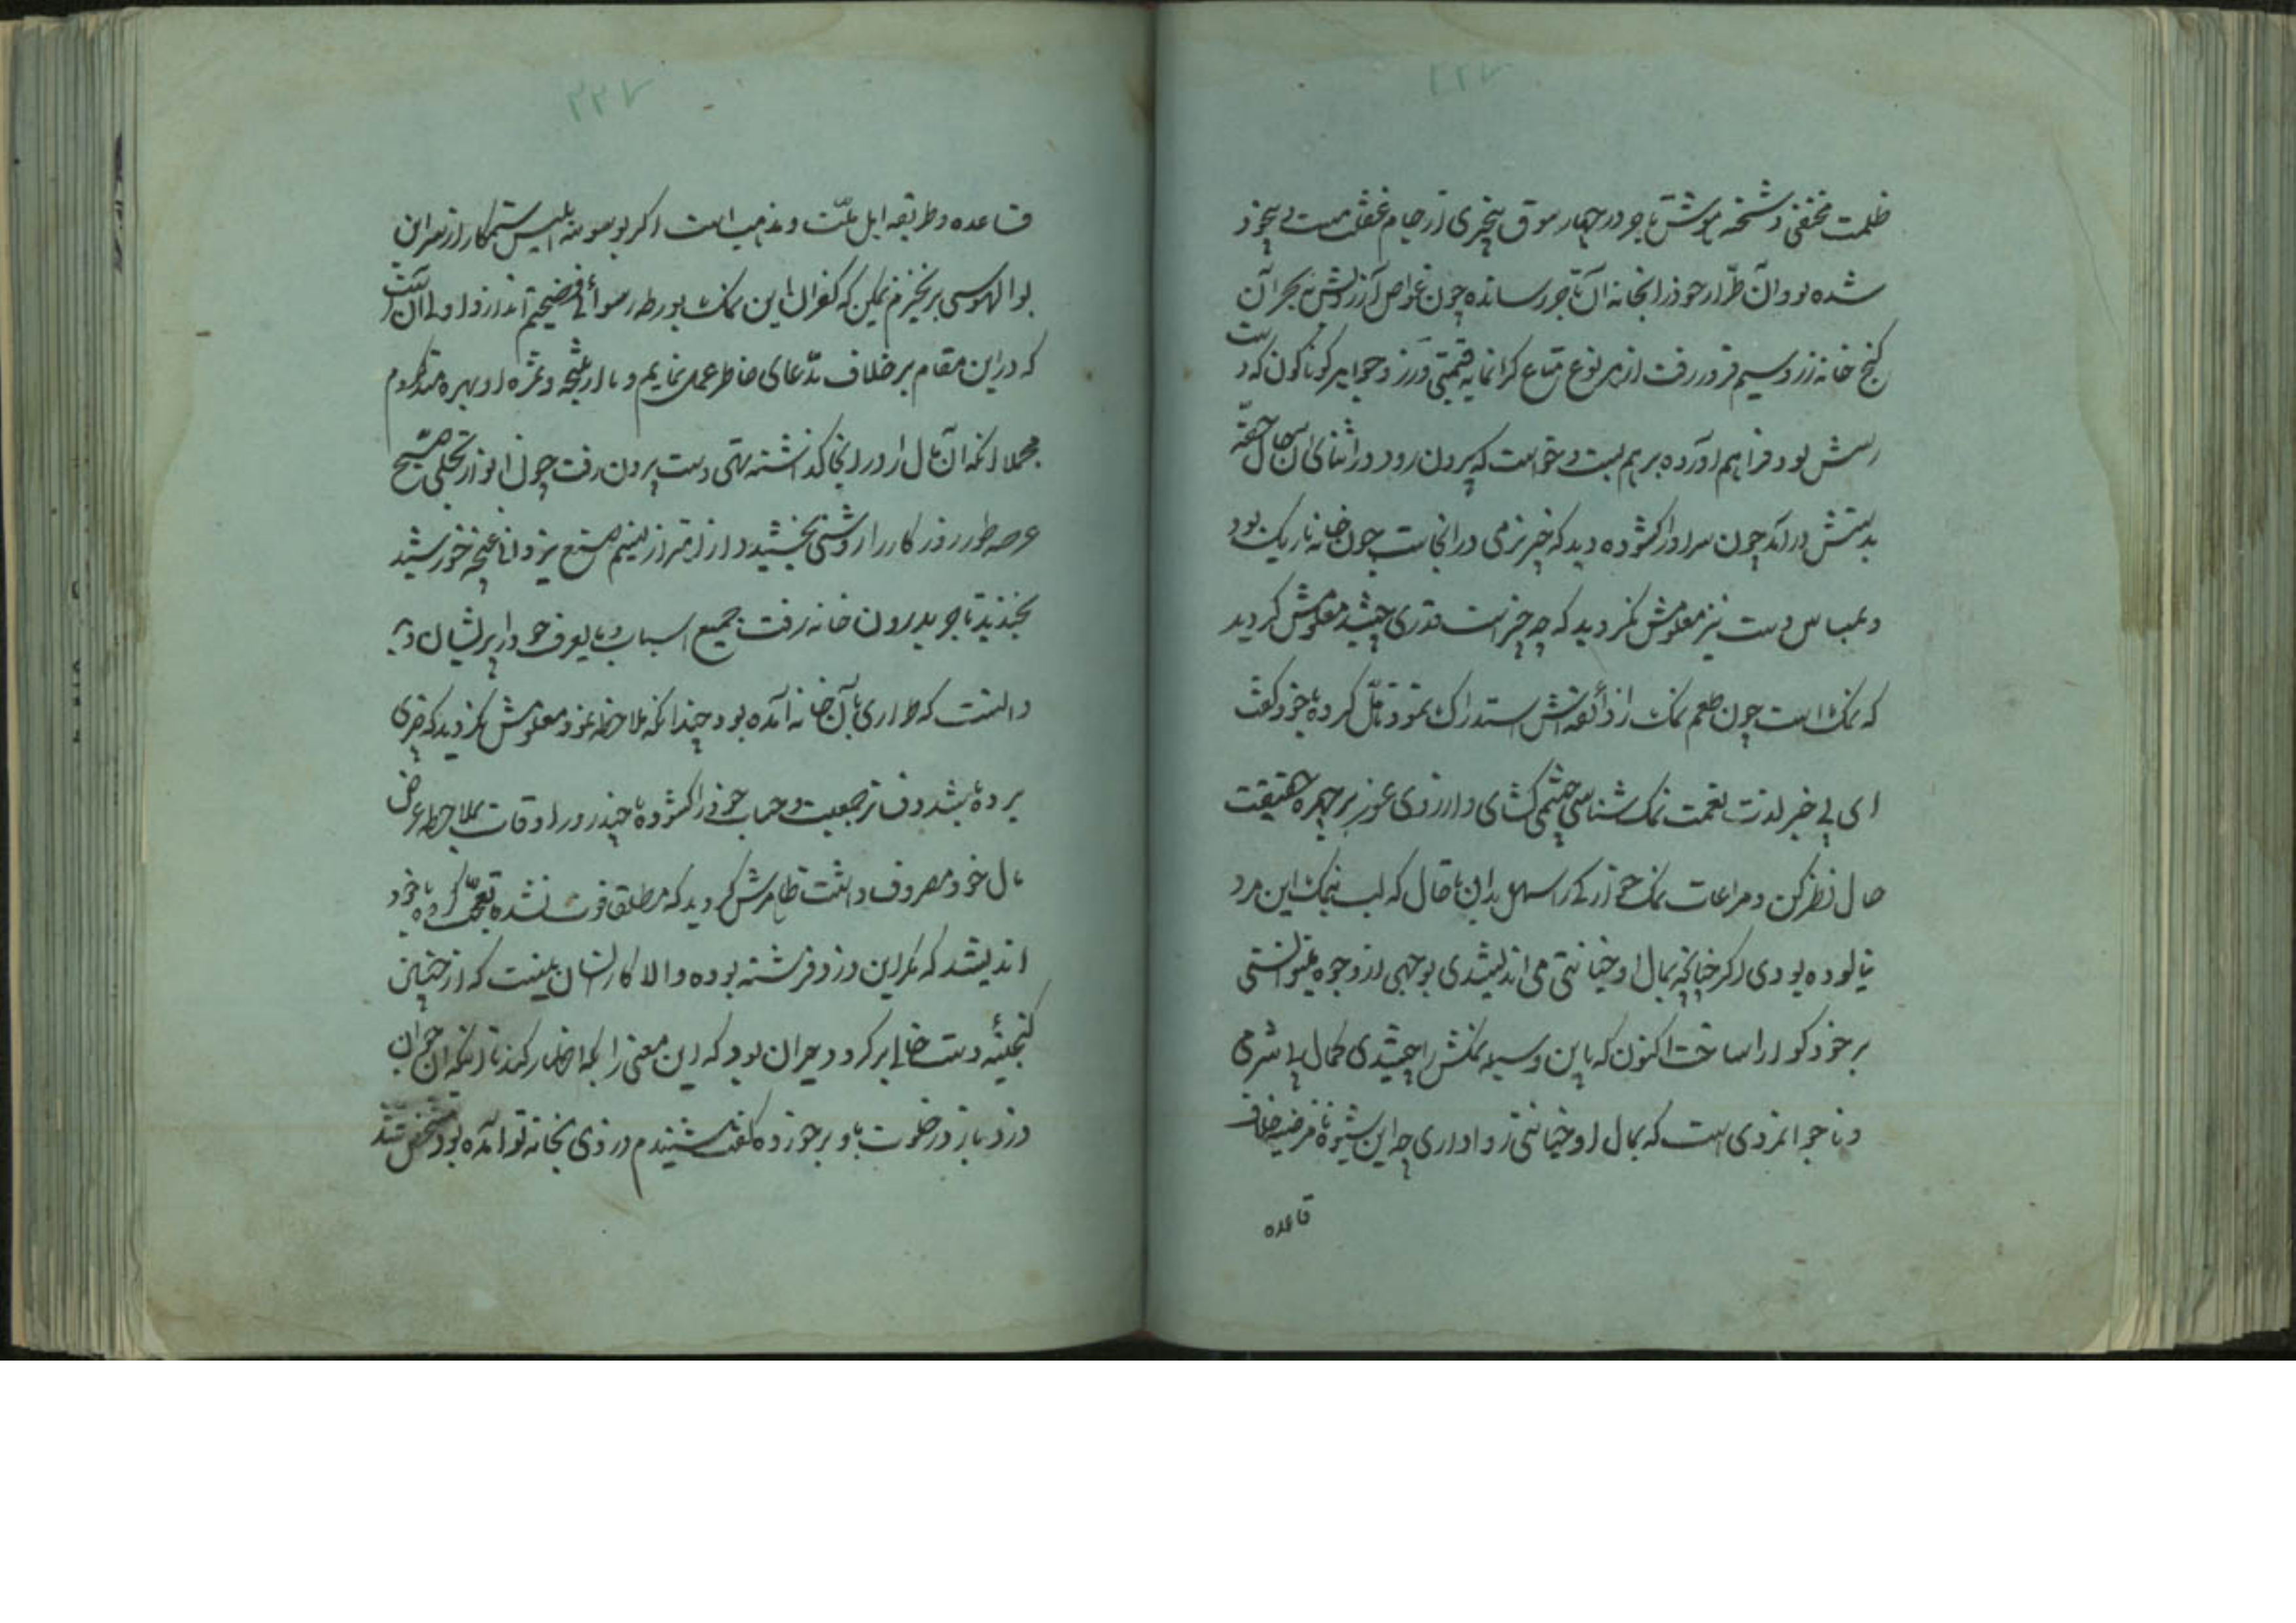 ۲۲۷
ظلمت مختفی و شحنه هوش تاجر در چهار سوق بیخبری از جام غفلت مست بیخود
شده بود و آن طرار خود را بخانه آن تاجر رسانده چون غواص آز درش به بحر آن
گنج خانه زر و سیم فرو رفت از هر نوع متاع گرانمایه قیمتی و زر و جواهر گوناگون که دست
رسش بود فراهم آورده بر هم بست و خواست که بیرون رود در اثنای آن حال حقه
بدستش در آمد چون سر او را گشوده دید که چیز نرمی در آنجاست چون خانه تاریک بود
و بمساس دست نیز معلومش نگردید که چه چیز است قدری چشید معلومش گردید
که نمک است چون طعم نمک را ذائقه اش استدراک نمود تأمل کرده با خود گفت
ای بی خبر لذت نعمت نمک شناسی چشمی گشای و از روی غور بر چهره حقیقت
حال نظر کن و مراعات نمک خوارگی را سهل مدان تا حال که لب بنمک این مرد
نیالوده بودی اگر چنانچه بمال او خیانتی می اندیشیدی بوجهی از وجوه میتوانستی
بر خود گوارا ساخت اکنون که باین وسیله نمکش را چشیدی کمال بی شرمی
و ناجوانمردی است که بمال او خیانتی روا داری چه این شیوه نامرضیه خلاف
قاعده
۲۲۷
قاعده و طریقه اهل ملت و مذهب است اگر بوسوسه ابلیس ستمکار از سر این
بوالهوسی بر نخیزم یمکن که کفران این نمک بورطه رسوائی و فضیحتم اندازد اولی آنست
که در این مقام بر خلاف مدعای خاطر عمل نمایم و تا از نتیجه و ثمره او بهره مند گردم
مجملا آنکه آن مال را در آنجا گذاشته تهی دست بیرون رفت چون انوار تجلی صبح
عرصه طور روزگار را روشنی بخشید و از اهتزاز نسیم صنع یزدان غنچه خورشید
بخندید تاجر بدرون خانه رفت جمیع اسباب و مایعرف خود را پریشان دید
دانست که طراری بآن خانه آمده بود چندانکه ملاحظه نمود معلومش نگردید که چیزی
برده باشد دفتر جمعیت و حساب خود را گشوده چند روز اوقات بملاحظه عرض
مال خود مصروف داشت ظاهرش گردید که مطلقا فوت نشده تعجب کرده با خود
اندیشد که مگر این دزد فرشته بوده و الا کار انسان نیست که از چنین
گنجینه دست خالی بر گردد و حیران بود که این معنی را بکه اظهار کند تا آنکه آن جوان
دزد باز در خلوت باو بر خورده گفت شنیدم دزدی بخانه تو آمده بود مشخص شد